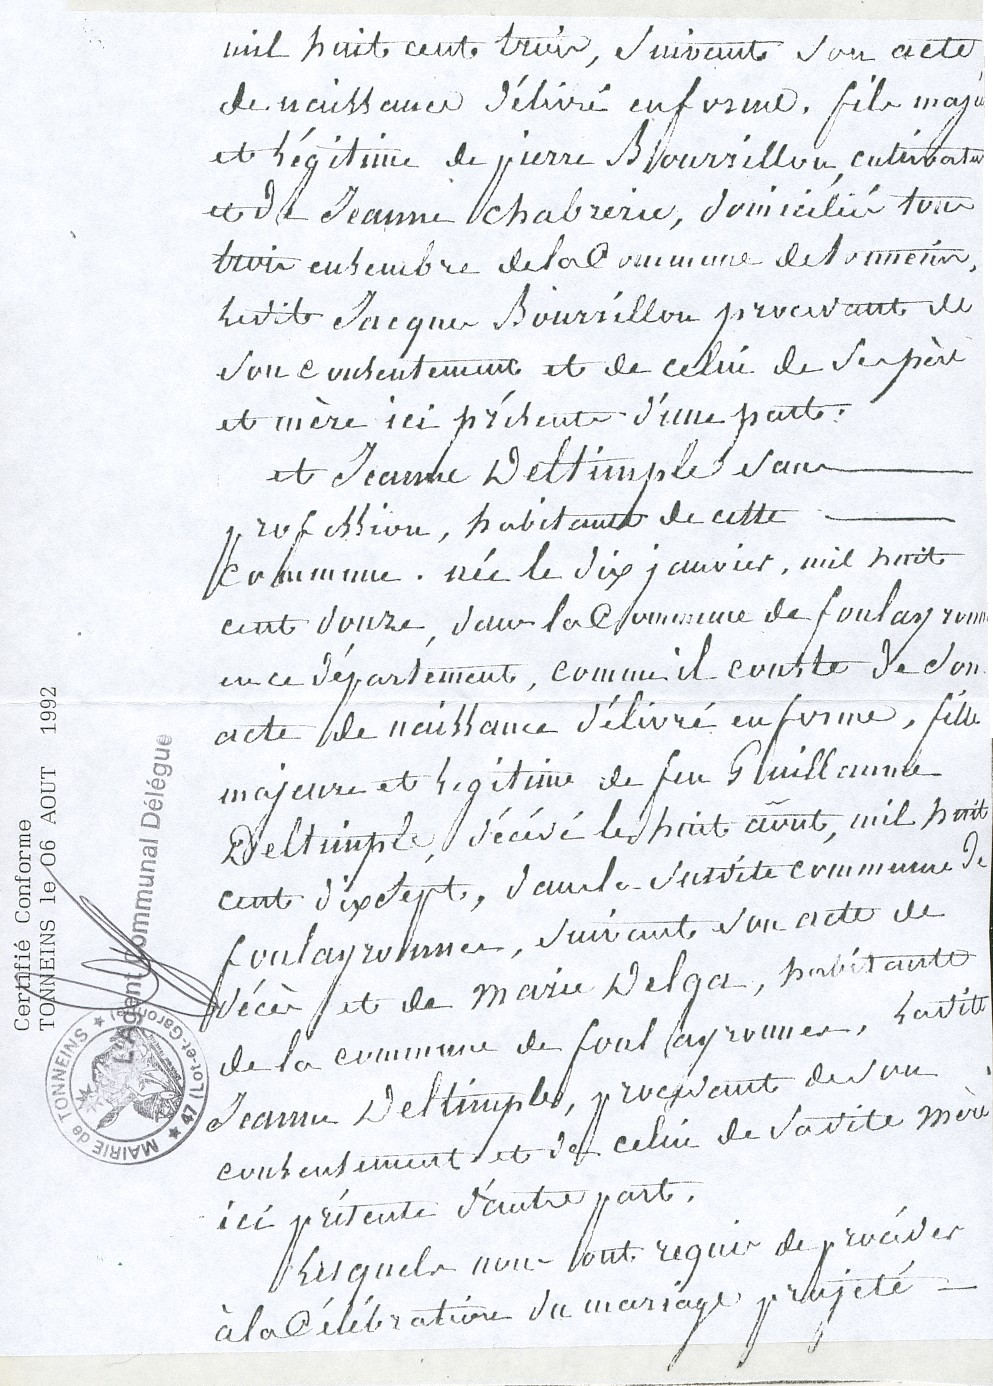 mil huit cent trois, suivant son acte
de naissance délivré en forme. fils maje
et légitime de pierre Boursillon, cultivateur
et de Jeanne Chabrerie, domiciliés tous
trois ensembre de la Commune de tonneins,
ledit Jacques Boursillon procédant de
son consentement et de celui de ses père
et mère ici présents d'une part:
et Jeanne Deltimple sans
profession, habitante de cette
Commune. née le dix janvier, mil huit
cent douze, dans la Commune de foulayronn
en ce département, comme il conste de son
acte de naissance délivré en forme, fille
majeure et légitime de feu Guillaume
Deltimple, décédé le huit août, mil huit
cent dix sept, dans la susdite commune de
foulayronnes, suivant son acte de
décès et de Marie Delga, habitante
de la commune de foulayronnes, ladite
Jeanne Deltimple, procédant de son
consentement et de celui de sadite mère
ici présente d'autre part.
Lesquels nous ont requis de procéder
à la Célébration du mariage projeté
Certifié Conforme
TONNEINS le 06 AOUT 1992
L'Agent Communal Délégué
MAIRIE de TONNEINS ★ 47 (Lot-et-Garonne) ★